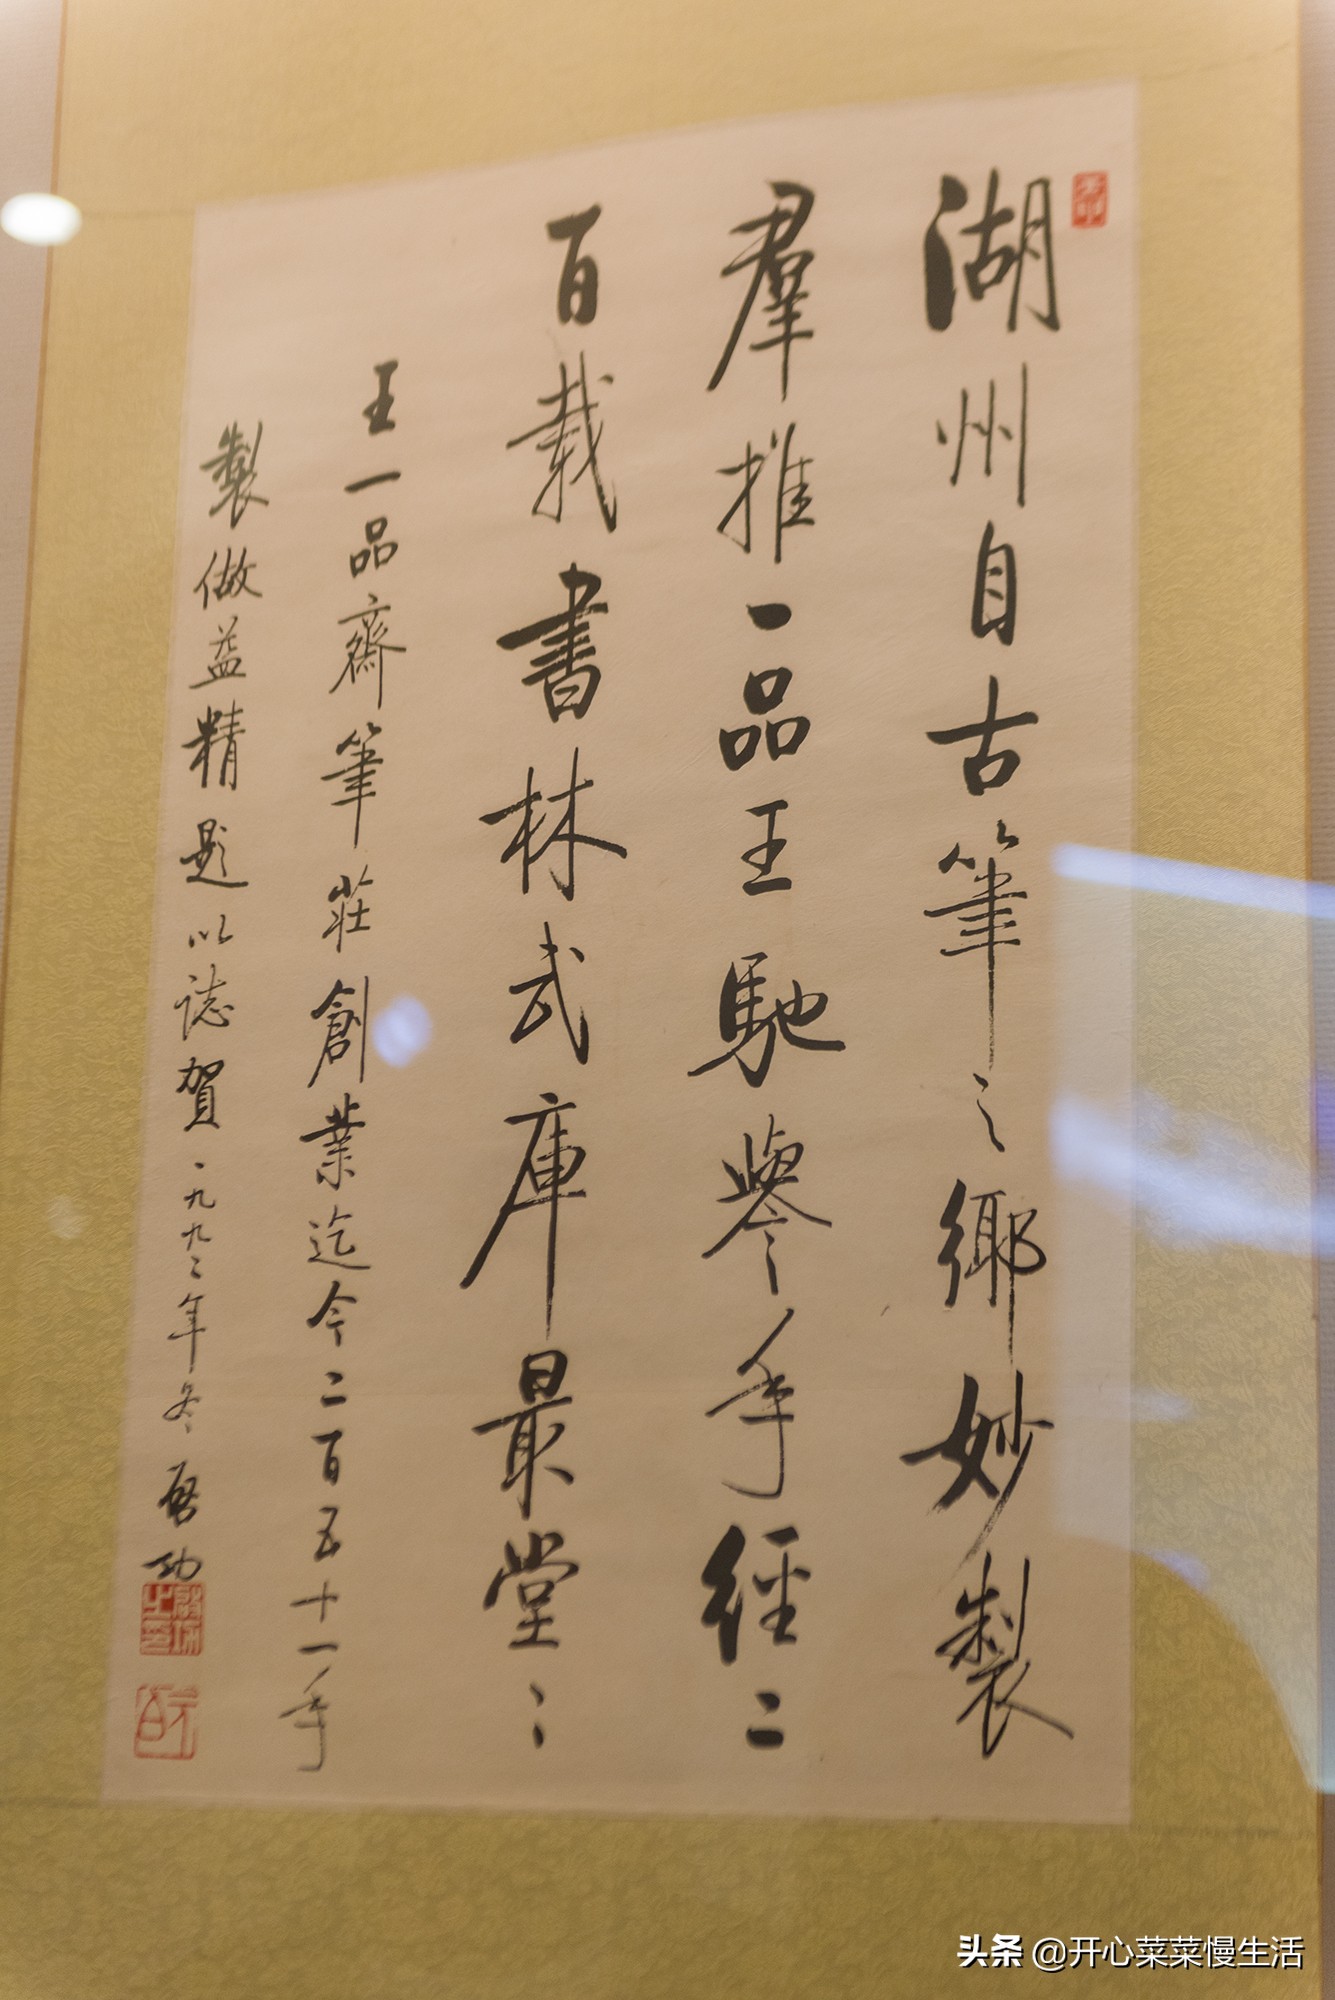 湖州自古筆之鄉妙製
羣推一品王馳譽年經二
百載書林武庫最堂〻
王一品齋筆莊創業迄今二百五十一年
製做益精題以誌賀一九九二年冬啓功
头条 @开心菜菜慢生活